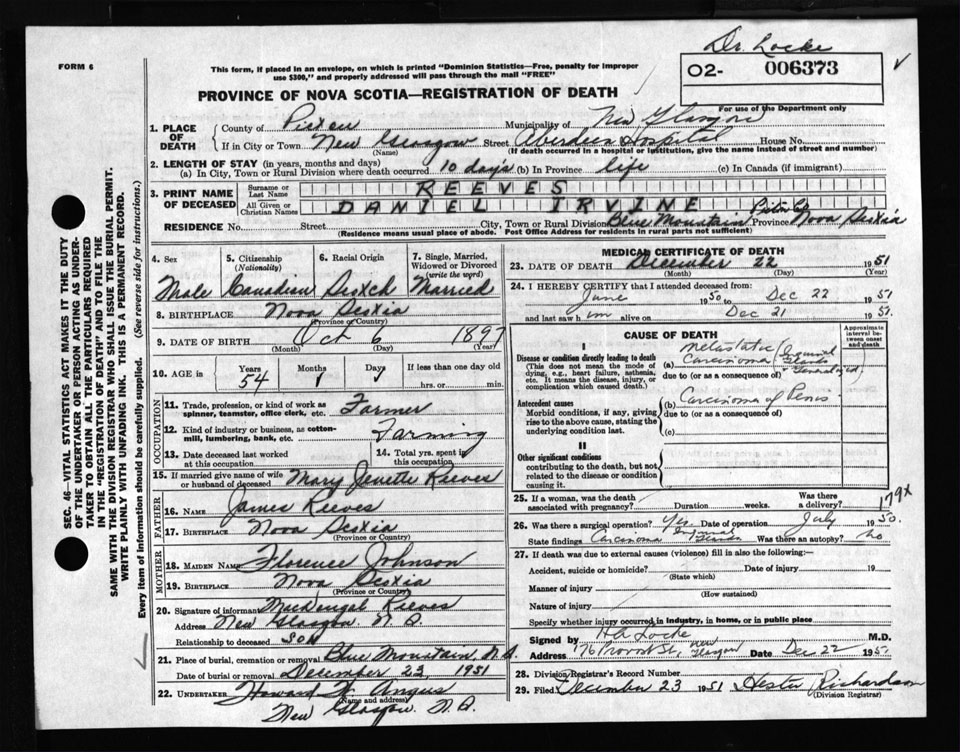 Dr. Locke
FORM 6
This form, if placed in an envelope, on which is printed "Dominion Statistics—Free, penalty for improper
use $300," and properly addressed will pass through the mail "FREE"
02- 006373
PROVINCE OF NOVA SCOTIA—REGISTRATION OF DEATH
For use of the Department only
1. PLACE OF DEATH
County of Pictou Municipality of New Glasgow
If in City or Town New Glasgow Street Aberdeen Hospital House No.
(Name) (If death occurred in a hospital or institution, give the name instead of street and number)
2. LENGTH OF STAY (in years, months and days)
(a) In City, Town or Rural Division where death occurred 10 days (b) In Province life (c) In Canada (if immigrant)
3. PRINT NAME OF DECEASED
Surname or Last Name REEVES
All Given or Christian Names DANIEL IRVINE
RESIDENCE No. Street City, Town or Rural Division Blue Mountain Pictou Co Province Nova Scotia
(Residence means usual place of abode. Post Office Address for residents in rural parts not sufficient)
4. Sex Male
5. Citizenship (Nationality) Canadian
6. Racial Origin Scotch
7. Single, Married, Widowed or Divorced (write the word) Married
8. BIRTHPLACE Nova Scotia
(Province or Country)
9. DATE OF BIRTH Oct 6 1897
(Month) (Day) (Year)
10. AGE in Years 54 Months Days If less than one day old
hrs. or min.
OCCUPATION
11. Trade, profession, or kind of work as spinner, teamster, office clerk, etc. Farmer
12. Kind of industry or business, as cotton-mill, lumbering, bank, etc. Farming
13. Date deceased last worked at this occupation
14. Total yrs. spent in this occupation
15. If married give name of wife or husband of deceased Mary Jenette Reeves
FATHER
16. NAME James Reeves
17. BIRTHPLACE Nova Scotia
(Province or Country)
MOTHER
18. MAIDEN NAME Florence Johnson
19. BIRTHPLACE Nova Scotia
(Province or Country)
20. Signature of informant MacDougal Reeves
Address New Glasgow N.S.
Relationship to deceased son
21. Place of burial, cremation or removal Blue Mountain, N.S.
Date of burial or removal December 23 1951
22. UNDERTAKER Howard W. Angus
(Name and address)
New Glasgow, N.S.
MEDICAL CERTIFICATE OF DEATH
23. DATE OF DEATH December 22 1951
(Month) (Day)
24. I HEREBY CERTIFY that I attended deceased from:
June 1950 to Dec 22 1951
and last saw him alive on Dec 21 1951
CAUSE OF DEATH
Approximate interval between onset and death
I
Disease or condition directly leading to death
(This does not mean the mode of dying, e.g., heart failure, asthenia, etc. It means the disease, injury, or complication which caused death.)
(a) Metastatic Carcinoma (Inguinal Glands Generalized)
due to (or as a consequence of)
Antecedent causes
Morbid conditions, if any, giving rise to the above cause, stating the underlying condition last.
(b) Carcinoma of Penis
due to (or as a consequence of)
(c)
II
Other significant conditions
contributing to the death, but not related to the disease or condition causing it.
25. If a woman, was the death associated with pregnancy? Duration weeks. Was there a delivery?
179x
26. Was there a surgical operation? Yes. Date of operation July 1950.
State findings Carcinoma Inguinal Glands Was there an autopsy? no
27. If death was due to external causes (violence) fill in also the following:—
Accident, suicide or homicide? Date of injury 19
(State which)
Manner of injury
(How sustained)
Nature of injury
Specify whether injury occurred in industry, in home, or in public place
Signed by H A Locke M.D.
Address 176 Provost St., New Glasgow Date Dec 22 1951
28. Division Registrar's Record Number
29. Filed December 23 1951 Hester Richardson
(Division Registrar)
SEC. 46—VITAL STATISTICS ACT MAKES IT THE DUTY
OF THE UNDERTAKER OR PERSON ACTING AS UNDER-
TAKER TO OBTAIN ALL THE PARTICULARS REQUIRED
IN THE "REGISTRATION OF DEATH" AND TO FILE THE
SAME WITH THE DIVISION REGISTRAR WHO SHALL ISSUE THE BURIAL PERMIT.
WRITE PLAINLY WITH UNFADING INK. THIS IS A PERMANENT RECORD.
Every item of information should be carefully supplied. (See reverse side for instructions.)